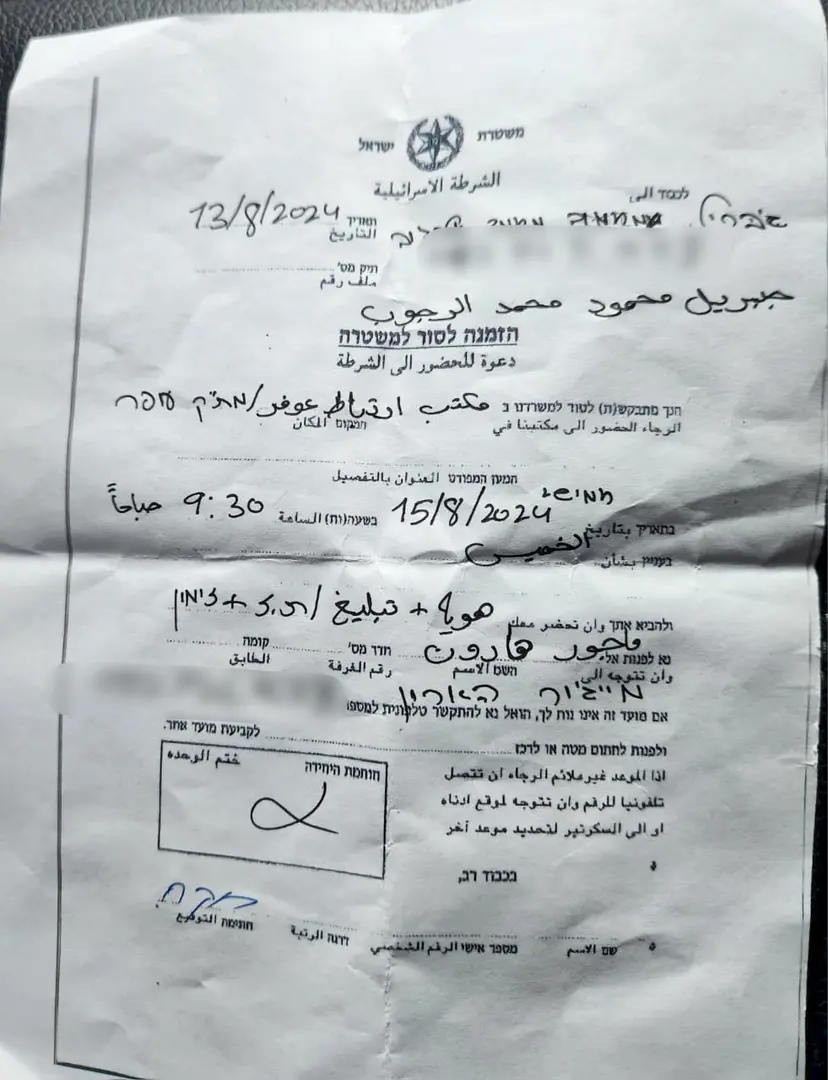 משטרת ישראל
الشرطة الاسرائيلية
לכבוד الى
תאריך 13/8/2024
التاريخ
תיק מס' ............
ملف رقم
جبريل محمود محمد الرجوب
הזמנה לסור למשטרה
دعوة للحضور الى الشرطة
הנך מתבקש(ת) לסור למשרדנו ב مكتب ارتباط عوفر/מת"ק עפר
الرجاء الحضور الى مكتبنا في המקום المكان
המען המפורט العنوان بالتفصيل
חמישי
בתאריך بتاريخ 15/8/2024 בשעה(ות) الساعة 9:30 صباحاً
الخميس
בעניין بشأن
ולהביא אתך وان تحضر معك هوية + تبليغ/ת.ז + זימון
נא לפנות אל ماجور هارون חדר מס' ............ קומה ............
وان تتوجه الى השם الاسم رقم الغرفة الطابق
מייג'ור הארון
אם מועד זה אינו נוח לך, הואל נא להתקשר טלפונית למספר
ולפנות לחתום מטה או לרכז ............ לקביעת מועד אחר.
اذا الموعد غير ملائم الرجاء ان تتصل
تلفونيا للرقم وان تتوجه لموقع ادناه
او الى السكرتير لتحديد موعد آخر
חותמת היחידה ختم الوحده
בכבוד רב,
שם الاسم מספר אישי الرقم الشخصي דרגה الرتبة חתימה التوقيع